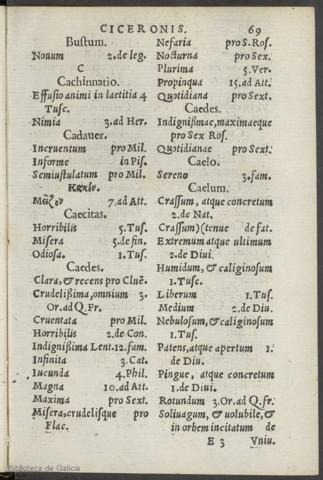 CICERONIS. 69
Bustum.
Nonum 2.de leg.
C
Cachinnatio.
Effusio animi in laetitia 4
Tusc.
Nimia 3.ad Her.
Cadauer.
Incruentum pro Mil.
Informe in Pis.
Semiustulatum pro Mil.
7.ad Att.
Caecitas.
Horribilis 5.Tus.
Misera 5.de fin.
Odiosa. 1.Tus.
Caedes.
Clara, & recens pro Cluẽ.
Crudelißima, omnium 3.
Or.ad Q.Fr.
Cruentata pro Mil.
Horribilis 2.de Con.
Indignißima Lent.12.fam.
Infinita 3.Cat.
Iucunda 4.Phil.
Magna 10.ad Att.
Maxima pro Sext.
Misera, crudelisque pro
Flac.
Nefaria pro S.Ros.
Nocturna pro Sex.
Plurima 5.Ver.
Propinqua 15.ad Att.
Quotidiana pro Sext.
Caedes.
Indignißmae, maximaeque
pro Sex Ros.
Quotidianae pro Sext.
Caelo.
Sereno 3.fam.
Caelum.
Crassum, atque concretum
2.de Nat.
Crassum)(tenue de fat.
Extremum atque ultimum
2.de Diui.
Humidum, & caliginosum
1.Tusc.
Liberum 1.Tus.
Medium 2.de Diu.
Nebulosum, & caliginosum
1.Tus.
Patens, atque apertum 1.
de Diu.
Pingue, atque concretum
1.de Diui.
Rotundum 3.Or.ad Q.fr.
Soliuagum, & uolubile, &
in orbem incitatum de
E 3 Vniu.
Biblioteca de Galicia